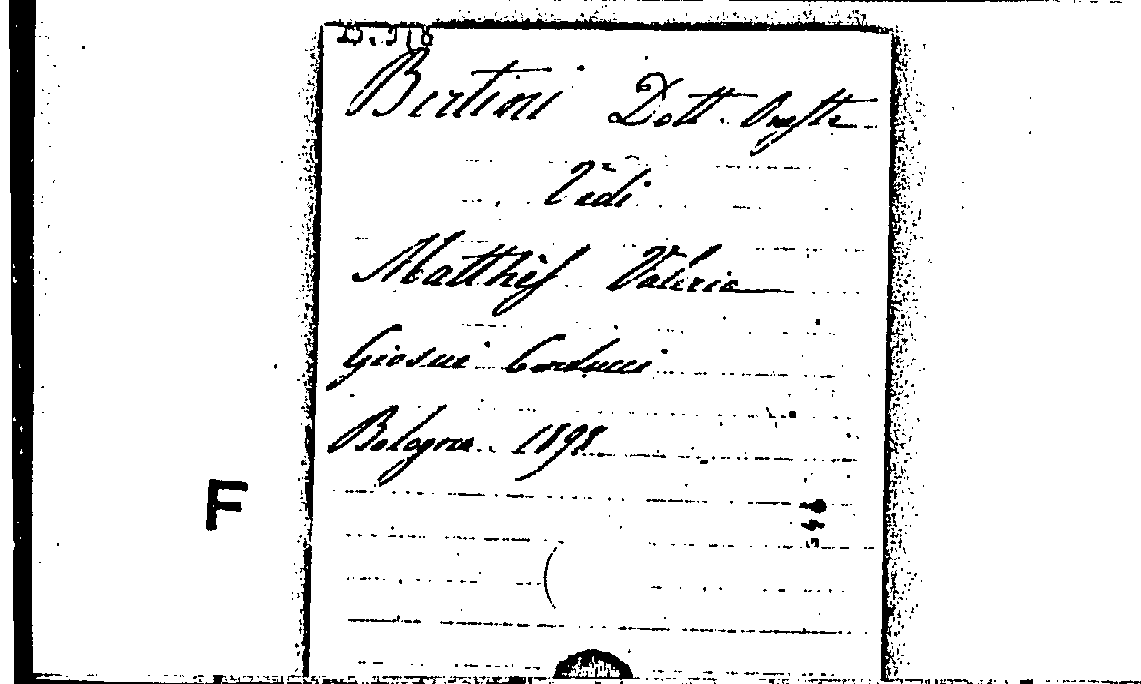 Bertini Dott. Oreste
Vedi
Matthêf Valeria
Giosuè Carducci
Bologna 1898
F